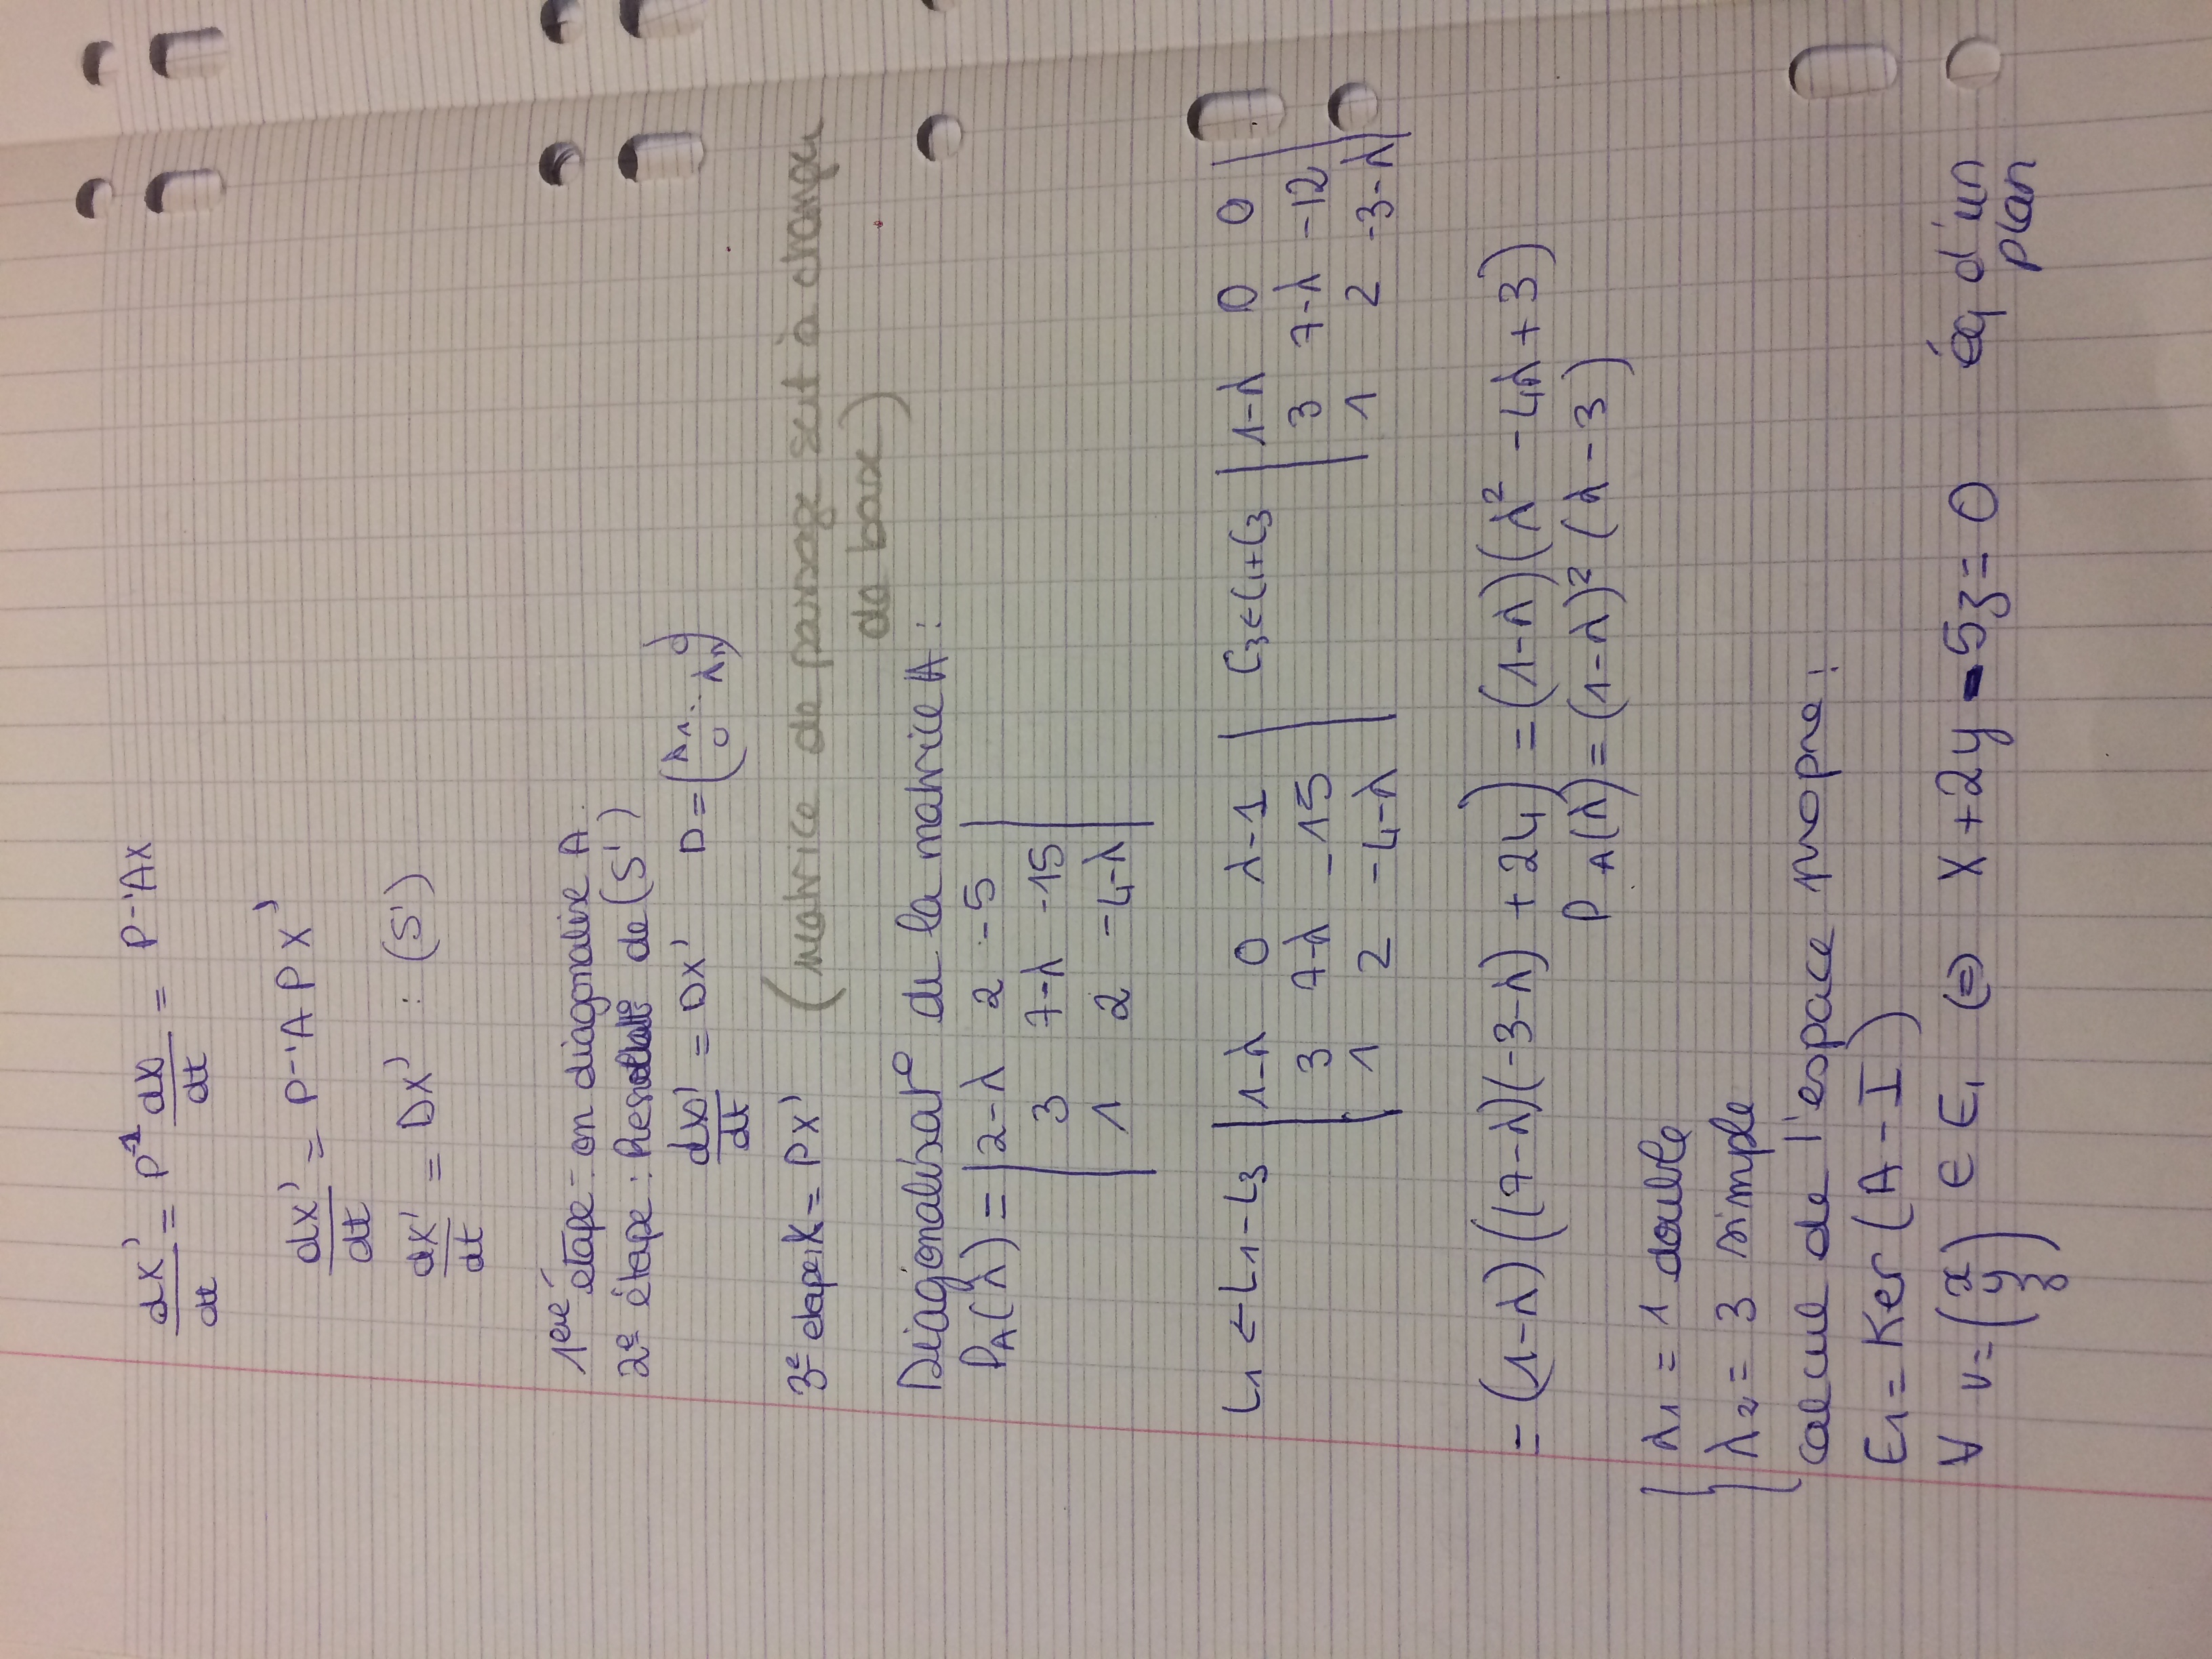 dX'/dt = P⁻¹ dX/dt = P⁻¹AX
dX'/dt = P⁻¹APX'
dX'/dt = DX' : (S')
1ère étape - on diagonalise A.
2e étape : de (S')
dX'/dt = DX' D = (λ1 . 0
0 . λn)
3e etape : X = PX' (matrice de passage sert à changer
de base)
Diagonalisat° de la matrice A :
PA(λ) = |2-λ 2 -5|
|3 7-λ -15|
|1 2 -4-λ|
L1 ← L1 - L3 |1-λ 0 λ-1| C3 ← C1 + C3 |1-λ 0 0|
|3 7-λ -15| |3 7-λ -12|
|1 2 -4-λ| |1 2 -3-λ|
= (1-λ)((7-λ)(-3-λ) + 24) = (1-λ)(λ² - 4λ + 3)
PA(λ) = (1-λ)² (λ - 3)
λ1 = 1 double
λ2 = 3 simple
calcul de l'espace propre :
E1 = Ker (A - I)
∀ v = (x y z) ∈ E1 ⇔ x + 2y - 5z = 0 éq d'un
plan